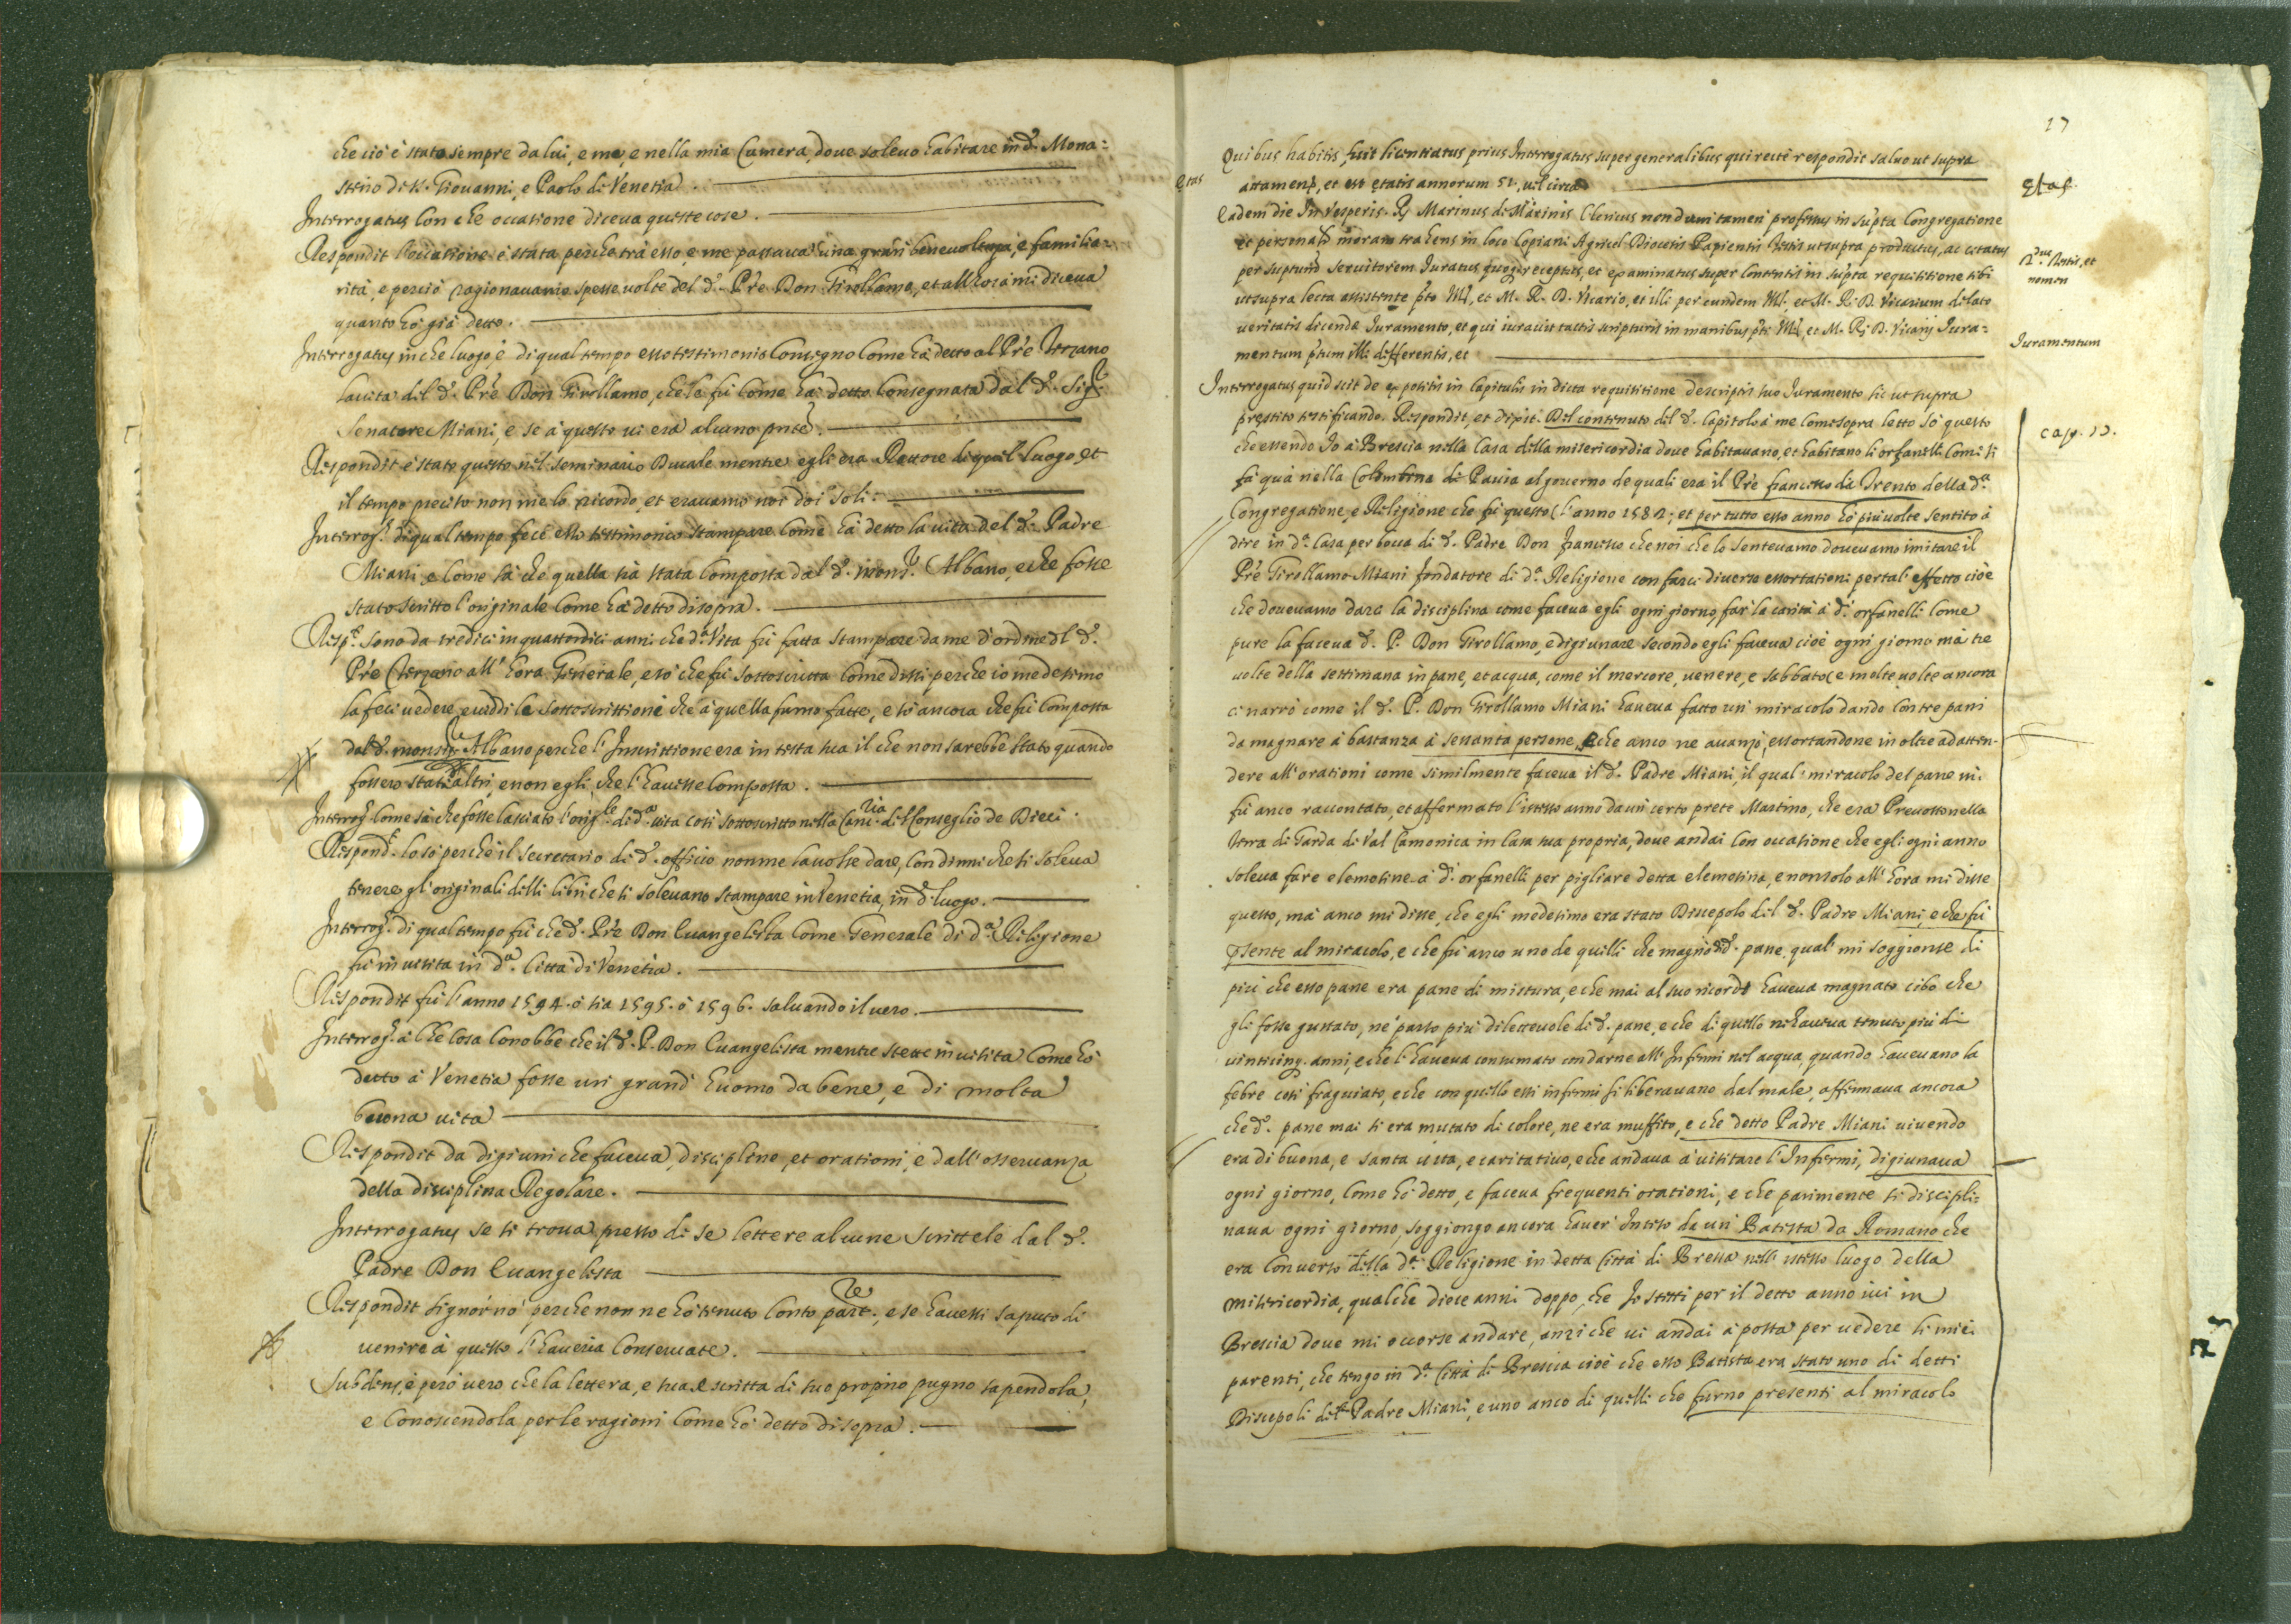 che ciò è stato sempre da lui, e me, e nella mia Camera, doue soleuo habitare in d.º Mona=
sterio di S. Giouanni, e Paolo di Venetia.
Interrogatus Con che occatione diceua queste cose.
Respondit l'occatione è stata perche trà esso, e me passaua una gran beneuolenza, e familia=
rità, e perciò ragionauamo spesse uolte del d.º Prê Don Girollamo, et all'hora mi diceua
quanto hò già detto.
Interrogatus in che luogo, è di qual tempo esso testimonio Consegnò Come hà detto al Prê Terzano
la uita dil d.º Prê Don Girollamo, che le fù Come hà detto Consegnata dal d.º Sig.r
Senatore Miani, e se à questo ui era alcuno pñte.
Respondit è stato questo nel seminario Ducale mentre egli era Rettore di quel luogo et
il tempo precito non me lo ricordo, et erauamo noi doi soli.
Interrog.s di qual tempo fece esso testimonio stampare Come hà detto la uita del d.º Padre
Miani, e Come sà che quella sia stata Composta dal d.º mons.r Albano, e che fosse
stato scritto l'originale Come hà detto di sopra.
Resp.t Sono da tredici in quattordici anni che d.a Vita fù fatta stampare da me d'ordine dl d.º
Prê Terzano all'hora Generale, e sò che fù sottoscritta Come dissi perche io medesimo
la feci uedere, e uiddi le sottoscrittioni che à quella furno fatte, e sò ancora che fù Composta
dal d.º monsig.r Albano perche l'Inscrittione era in testa sua il che non sarebbe stato quando
fossero stati altri, e non egli, che l'hauesse Composta.
Interrog.s Come sà che fosse lasciato l'orig.le di d.a uita così sottoscritto nella Canc.ria del Conseglio de Dieci.
Respond.t lo sò perche il secretario di d.º officio non me la uolse dare, Con dirmi che si soleua
tenere gl'originali delli libri che si soleuano stampare in Venetia, in d.º luogo.
Interrog.s di qual tempo fù che d.º Prê Don Euangelista Come Generale di d.a Religione
fù in uisita in d.a Città di Venetia.
Respondit fù l'anno 1594. ò sia 1595. ò 1596. saluando il uero.
Interrog.s à che Cosa Conobbe che il d.º P. Don Euangelista mentre stette in uisita Come hò
detto à Venetia fosse un grand' huomo da bene, e di molta
buona uita
Respondit da digiuni che faceua, discipline, et orationi, e dall'osseruanza
della disciplina Regolare.
Interrogatus se si troua presso di se lettere alcune scritteli dal d.º
Padre Don Euangelista
Respondit signor nò perche non ne hò tenuto Conto part.re, e se hauessi saputo di
uenire à questo l'haueria Conseruate.
Subdens, è però uero che la lettera, e sua e scritta di suo proprio pugno sapendola,
e Conoscendola per le ragioni Come hò detto di sopra.
17
Quibus habitis fuit licentiatus prius Interrogatus super generalibus qui recte respondit saluo ut supra
attamen, et est ętatis annorum 51, uel circa
ętas
Etas
Eadem die In Vesperis. R. Marinus de Marinis Clericus nondum tamen professus in supta Congregatione
et personalr moram trahens in loco Copiani Agricol Diocesis Papiensis Testis ut supra productus, ac citatus
2.us Testis, et
nomen
per suptum seruitorem Iuratus quoq receptus, et examinatus super Contentis in supta requisitione sibi
ut supra lecta assistente pto Ill., et M. R. D. Vicario, et illi per eundem Ill. et M. R. D. Vicarium delato
ueritatis dicendę Iuramento, et qui iurauit tactis scripturis in manibus pti Ill. et M. R. D. Vicarij Iura=
mentum ptum illi differentis, et
Iuramentum
Interrogatus quid scit de expositis in Capitulis in dicta requisitione descriptis suo Iuramento sic ut supra
prestito testificando. Respondit, et dixit. Del contenuto del d.º Capitolo à me Come sopra letto sò questo
Cap. 12.
che essendo Io à Brescia nella Casa della misericordia doue habitauano, et habitano li orfanelli Come si
fà quà nella Colombina di Pauia al gouerno de quali era il Prê francesco di Trento della d.a
Congregatione, e Religione che fù questo l'anno 1582; et per tutto esso anno hò più uolte sentito à
dire in d.a Casa per bocca di d.º Padre Don francesco che noi che lo senteuamo doueuamo imitare il
Prê Girollamo Miani fondatore di d.a Religione con farci diuerse essortationi per tal' effetto cioè
che doueuamo darci la disciplina come faceua egli ogni giorno, far la carità à d.i orfanelli Come
pure la faceua d.º P. Don Girollamo, e digiunare secondo egli faceua cioè ogni giorno mà tre
uolte della settimana in pane, et acqua, come il mercore, uenere, e sabbato, e molte uolte ancora
ci narrò come il d.º P. Don Girollamo Miani haueua fatto un miracolo dando Con tre pani
da magnare à bastanza à sessanta persone, e che anco ne auanzò, essortandone in oltre ad atten-
dere all'orationi come similmente faceua il d.º Padre Miani, il qual' miracolo del pane mi
fù anco raccontato, et affermato l'istesso anno da un certo prete Martino, che era Preuosto nella
terra di Garda di Val Camonica in Casa sua propria, doue andai Con occatione che egli ogni anno
soleua fare elemosine à d.i orfanelli per pigliare detta elemosina, e non solo all'hora mi disse
questo, mà anco mi disse, che egli medesimo era stato Discepolo dil d.º Padre Miani, e che fù
pñsente al miracolo, e che fù anco uno de quelli che magnò d.º pane. qual' mi soggionse di
più che esso pane era pane di mistura, e che mai al suo ricordo haueua magnato cibo che
gli fosse gustato, ne parso più diletteuole di d.º pane, e che di quello ne haueua tenuto più di
uinticinq. anni, e che l'haueua consumato con darne alli Infermi nel acqua, quando haueuano la
febre così fraguiato, e che con quello essi infermi si liberauano dal male, affirmaua ancora
che d.º pane mai si era mutato di colore, ne era muffito, e che detto Padre Miani uiuendo
era di buona, e santa uita, e caritatiuo, e che andaua à uisitare l'Infermi, digiunaua
ogni giorno, Come hò detto, e faceua frequenti orationi, e che parimente si discipli=
naua ogni giorno, soggiongo ancora hauer' inteso da un' Batista da Romano che
era Conuerso della d.a Religione in detta Città di Bressa nell' istesso luogo della
misericordia, qualche diece anni doppo, che Io stetti per il detto anno iui in
Brescia doue mi occorse andare, anzi che ui andai à posta per uedere li miei
parenti, che tengo in d.a Città di Brescia cioè che esso Batista era stato uno di detti
Discepoli del Padre Miani, e uno anco di quelli che furno presenti al miracolo